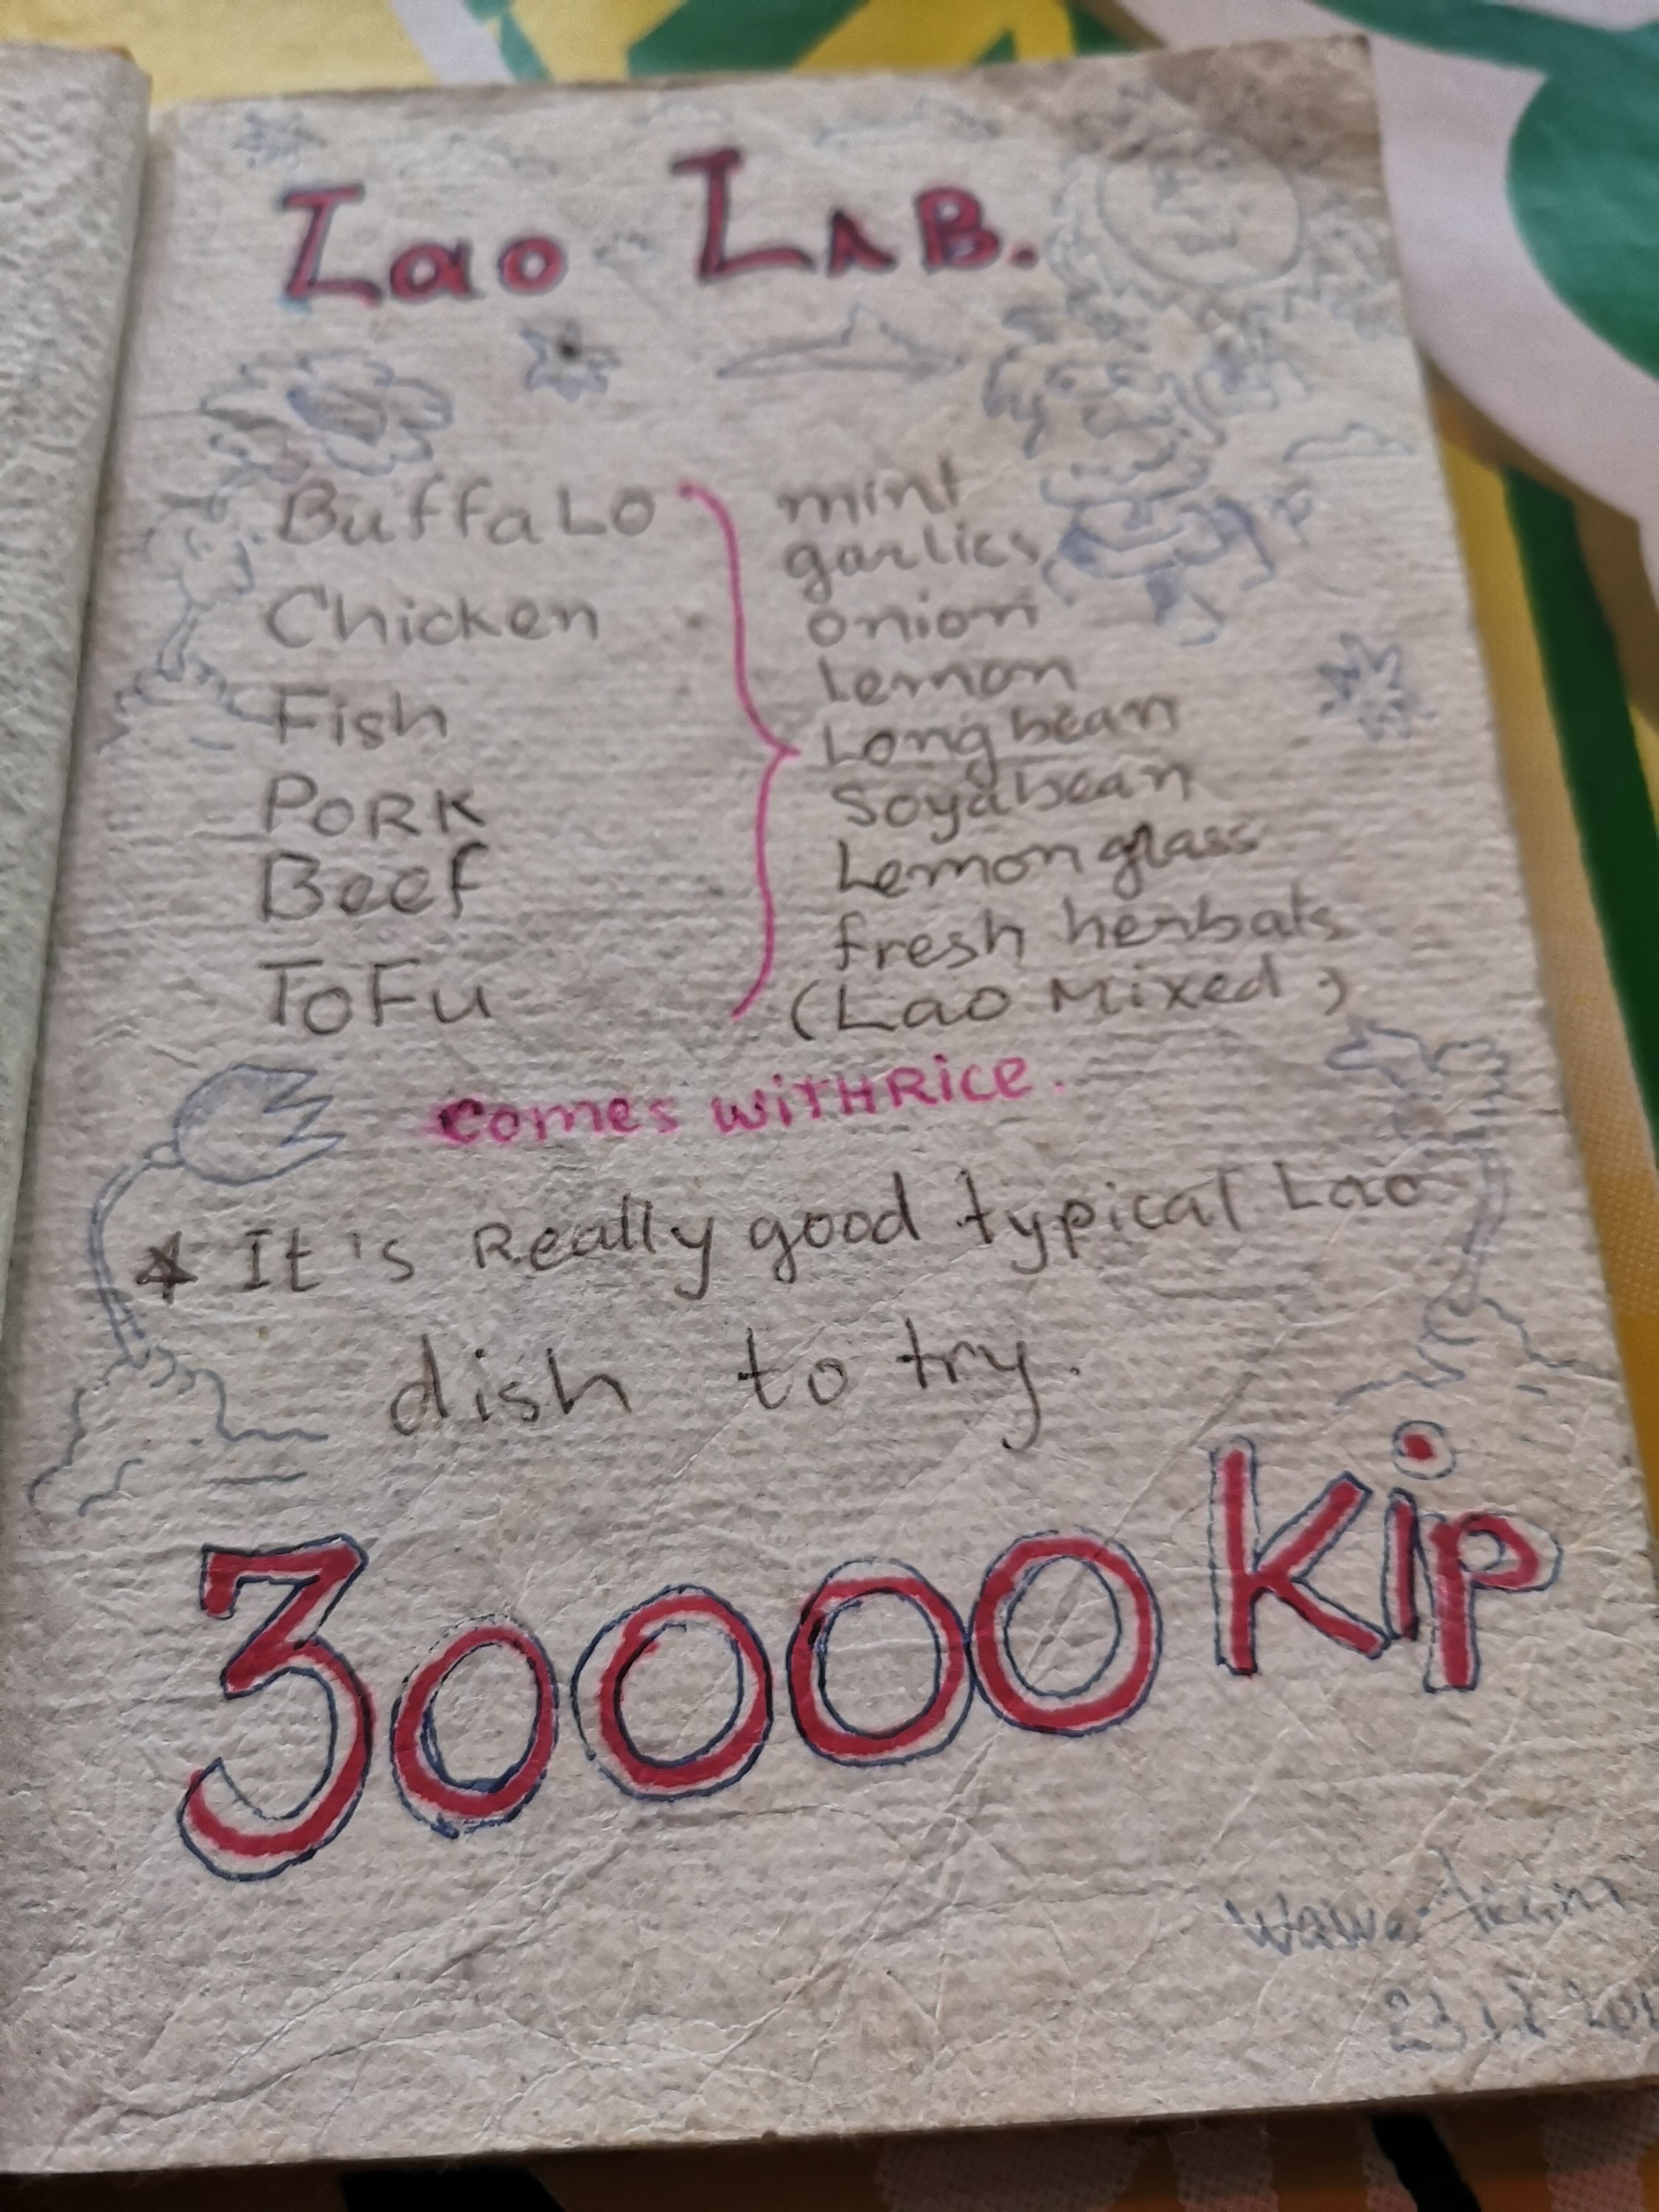 Lao LAB.
Buffalo
Chicken
Fish
PORK
Beef
ToFu
mint
garlics
onion
Lemon
Long bean
Soyabean
Lemon glass
fresh herbals
(Lao Mixed)
comes WITH RICE.
* It's Really good typical Lao
dish to try.
30000 Kip